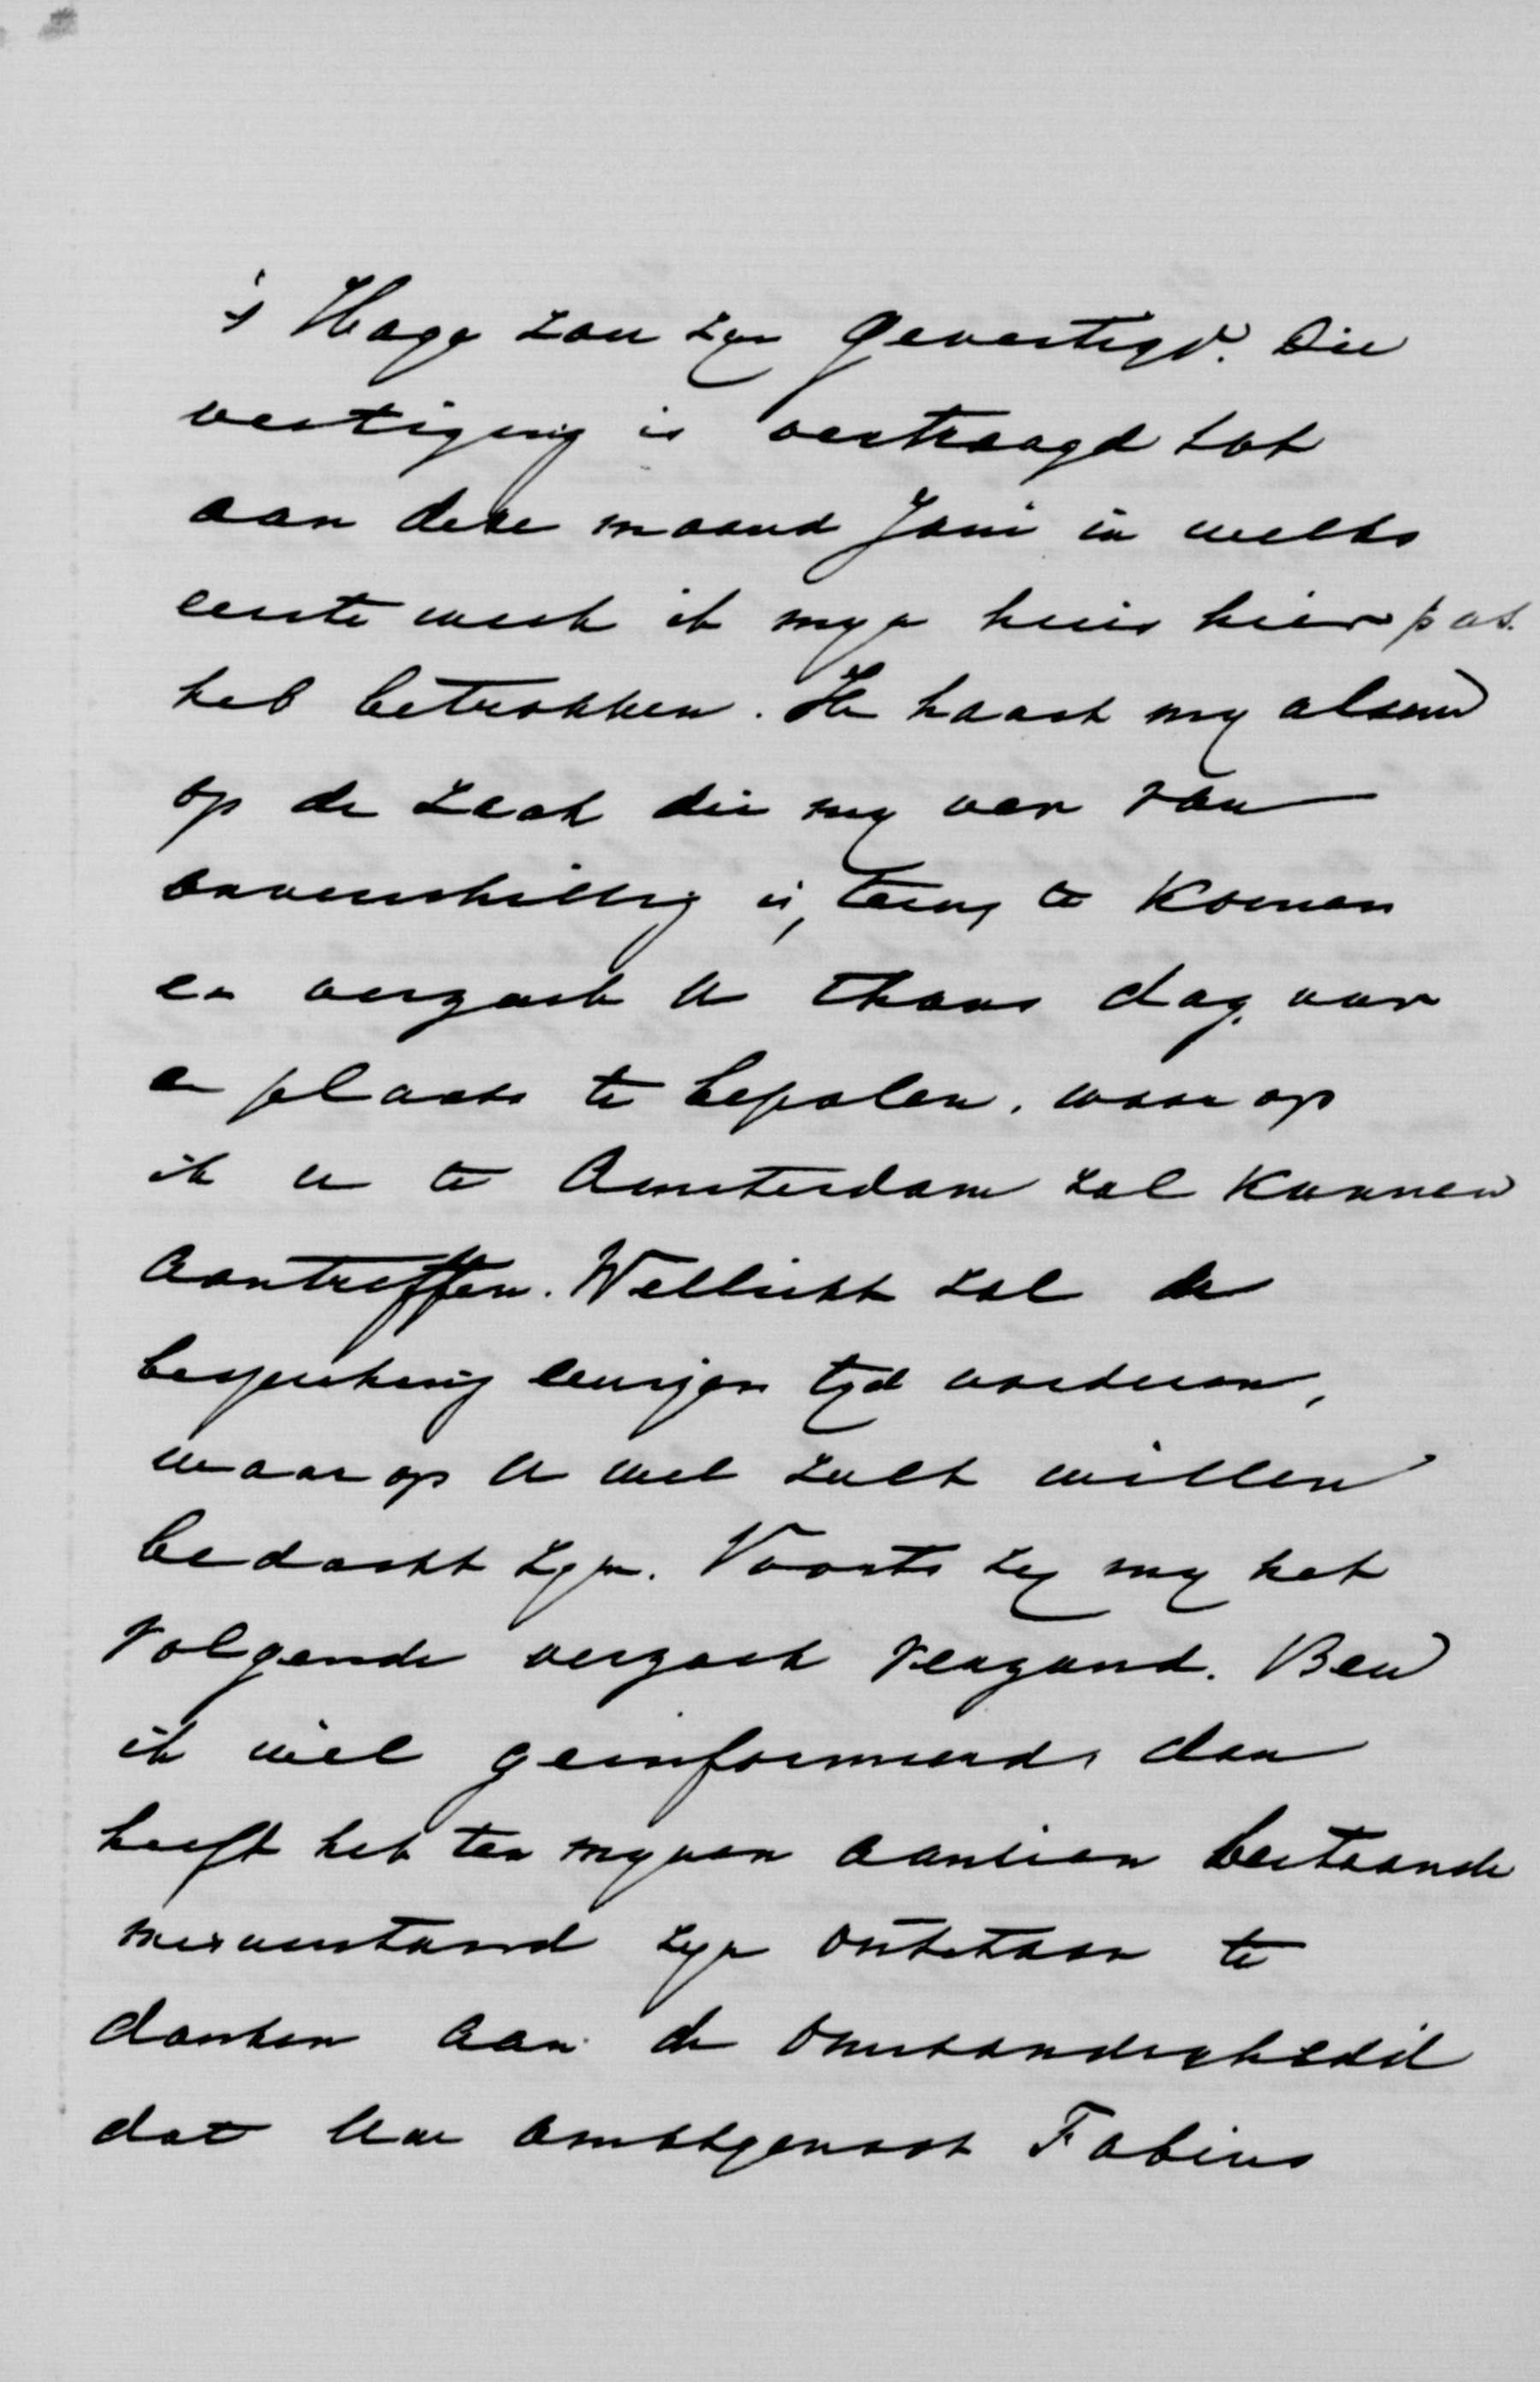 's Hage zou zyn gevestigd. Die
vestiging is vertraagd tot
aan deze maand Juni in welks
eerste week ik myn huis hier pas
heb betrokken. Ik haast my alsnu
op de zaak die my verre van
onverschillig is, terug te komen
en verzoek U thans dag, uur
en plaats te bepalen, waarop
ik U te Amsterdam zal kunnen
aantreffen. Wellicht zal de
bespreking eenigen tyd vorderen,
waarop U wel zult willen
bedacht zyn. Voorts zy my het
volgende verzoek vergund. Ben
ik wel geinformeerd, dan
heeft het ten mynen aanzien bestaande
misverstand zyn ontstaan te
danken aan de omstandigheid
dat Uw ambtgenoot Fabius